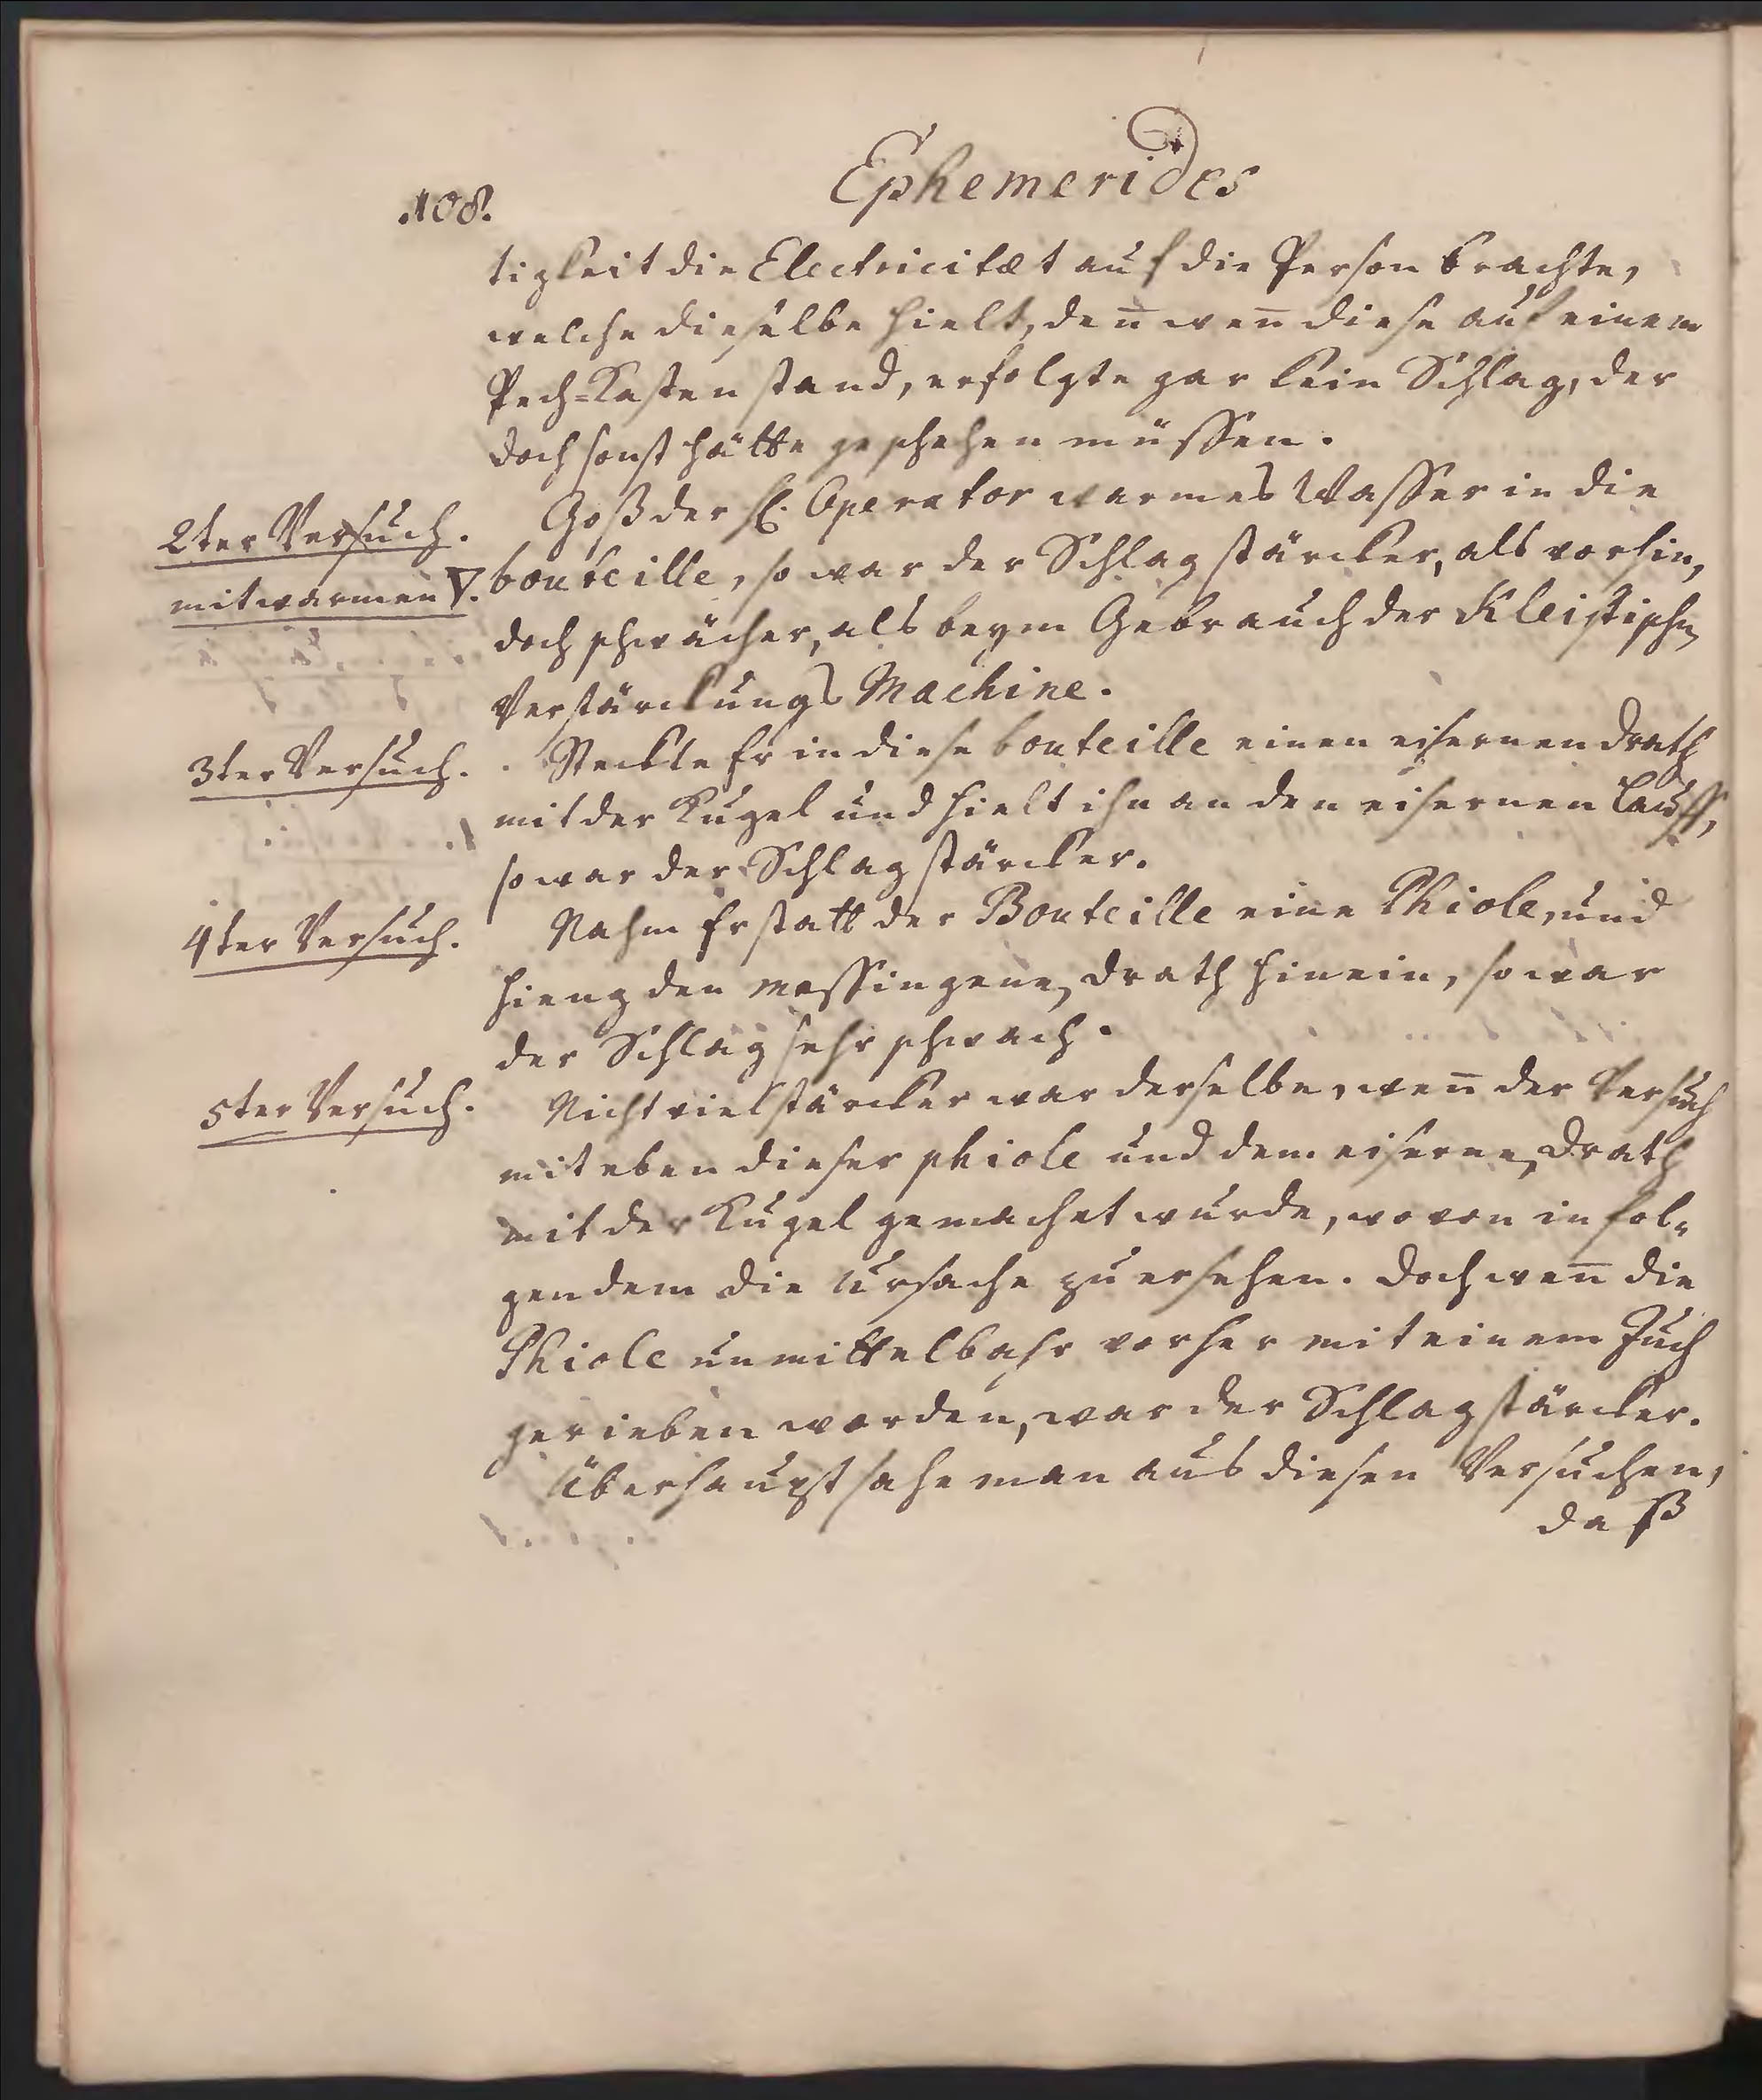 .108.
Ephemerides
tigkeit die Electricitæt auf die Person brachte,
welche dieselbe hielt, den̄ wen̄ diese auf einem
Pech=Kasten stand, erfolgte gar kein Schlag, der
doch sonst hätte geschehen müssen.
2ter Versuch.
mit warmen ▽.
Goß der H. Operator warmes Wasser in die
bouteille, so war der Schlag stärcker, als vorhin,
doch schwächer, als beym Gebrauch der Kleistischen
Verstärckungs Machine.
3ter Versuch.
Steckte Er in diese bouteille einen eisernen Drath
mit der Kugel und hielt ihn an den eisernen Lauff,
so war der Schlag stärcker.
4ter Versuch.
Nahm Er statt der Bouteille eine Phiole, und
hieng den messingenen Drath hinein, so war
der Schlag sehr schwach.
5ter Versuch.
Nicht viel stärcker war derselbe, wen̄ der Versuch
mit eben dieser phiole und dem eisernen Drath
mit der Kugel gemachet wurde, wovon in fol=
gendem die Ursache zu ersehen. Doch wen̄ die
Phiole unmittelbahr vorher mit einem Tuch
gerieben worden, war der Schlag stärcker.
Überhaupt sahe man aus diesen Versuchen,
daß